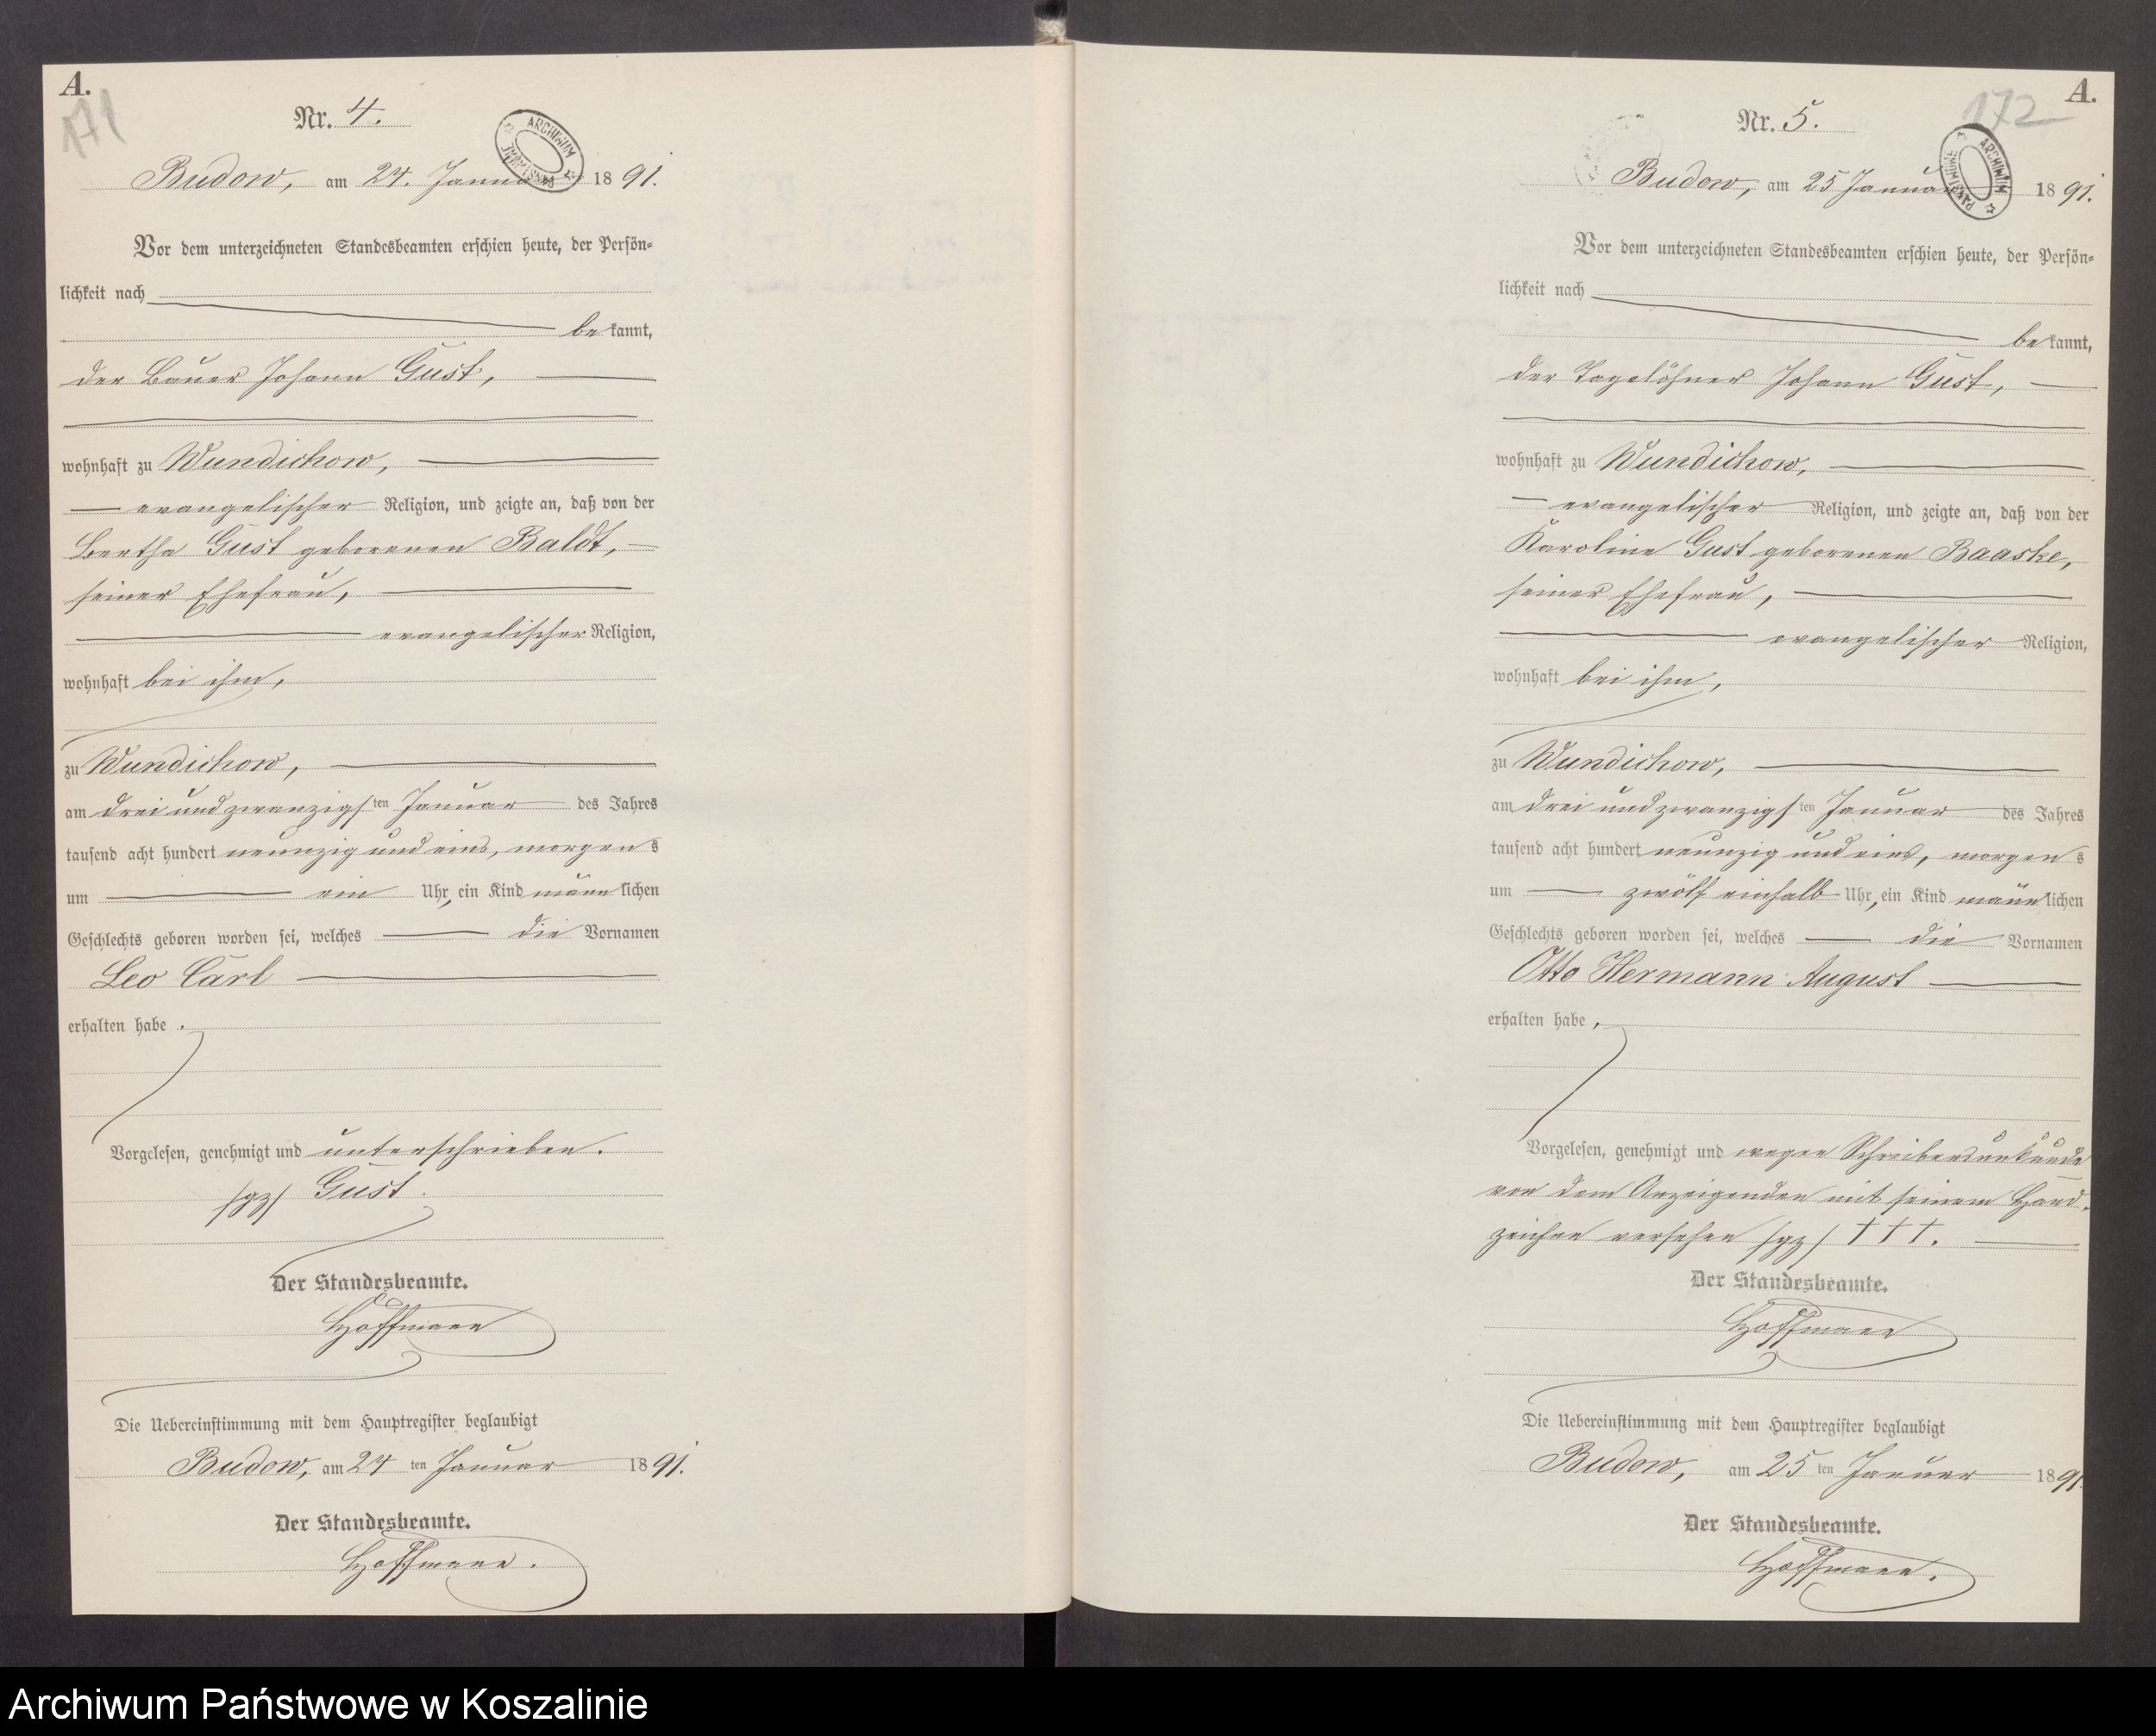 A.
171
Nr. 4.
Budow, am 24. Januar 1891.
Vor dem unterzeichneten Standesbeamten erschien heute, der Persön-
lichkeit nach
bekannt,
der Bauer Johann Gust,
wohnhaft zu Wundichow,
evangelischer Religion, und zeigte an, daß von der
Bertha Gust geborenen Baldt,
seiner Ehefrau,
evangelischer Religion,
wohnhaft bei ihm,
zu Wundichow,
am drei und zwanzigsten Januar des Jahres
tausend acht hundert neunzig und eins, morgens
um ein Uhr, ein Kind männlichen
Geschlechts geboren worden sei, welches die Vornamen
Leo Carl
erhalten habe.
Vorgelesen, genehmigt und unterschrieben.
/gz/ Gust.
Der Standesbeamte.
Hoffmann
Die Uebereinstimmung mit dem Hauptregister beglaubigt
Budow, am 24ten Januar 1891.
Der Standesbeamte.
Hoffmann.
ARCHIWUM PAŃSTWOWE
A.
172
Nr. 5.
Budow, am 25 Januar 1891.
Vor dem unterzeichneten Standesbeamten erschien heute, der Persön-
lichkeit nach
bekannt,
der Tagelöhner Johann Gust,
wohnhaft zu Wundichow,
evangelischer Religion, und zeigte an, daß von der
Karoline Gust geborenen Baaske,
seiner Ehefrau,
evangelischer Religion,
wohnhaft bei ihm,
zu Wundichow,
am drei und zwanzigsten Januar des Jahres
tausend acht hundert neunzig und eins, morgens
um zwölf einhalb Uhr, ein Kind männlichen
Geschlechts geboren worden sei, welches die Vornamen
Otto Hermann August
erhalten habe,
Vorgelesen, genehmigt und wegen Schreibensunkunde
von dem Anzeigenden mit seinem Hand-
zeichen versehen /gz/ † † †.
Der Standesbeamte.
Hoffmann
Die Uebereinstimmung mit dem Hauptregister beglaubigt
Budow, am 25ten Januar 1891.
Der Standesbeamte.
Hoffmann.
ARCHIWUM PAŃSTWOWE
Archiwum Państwowe w Koszalinie